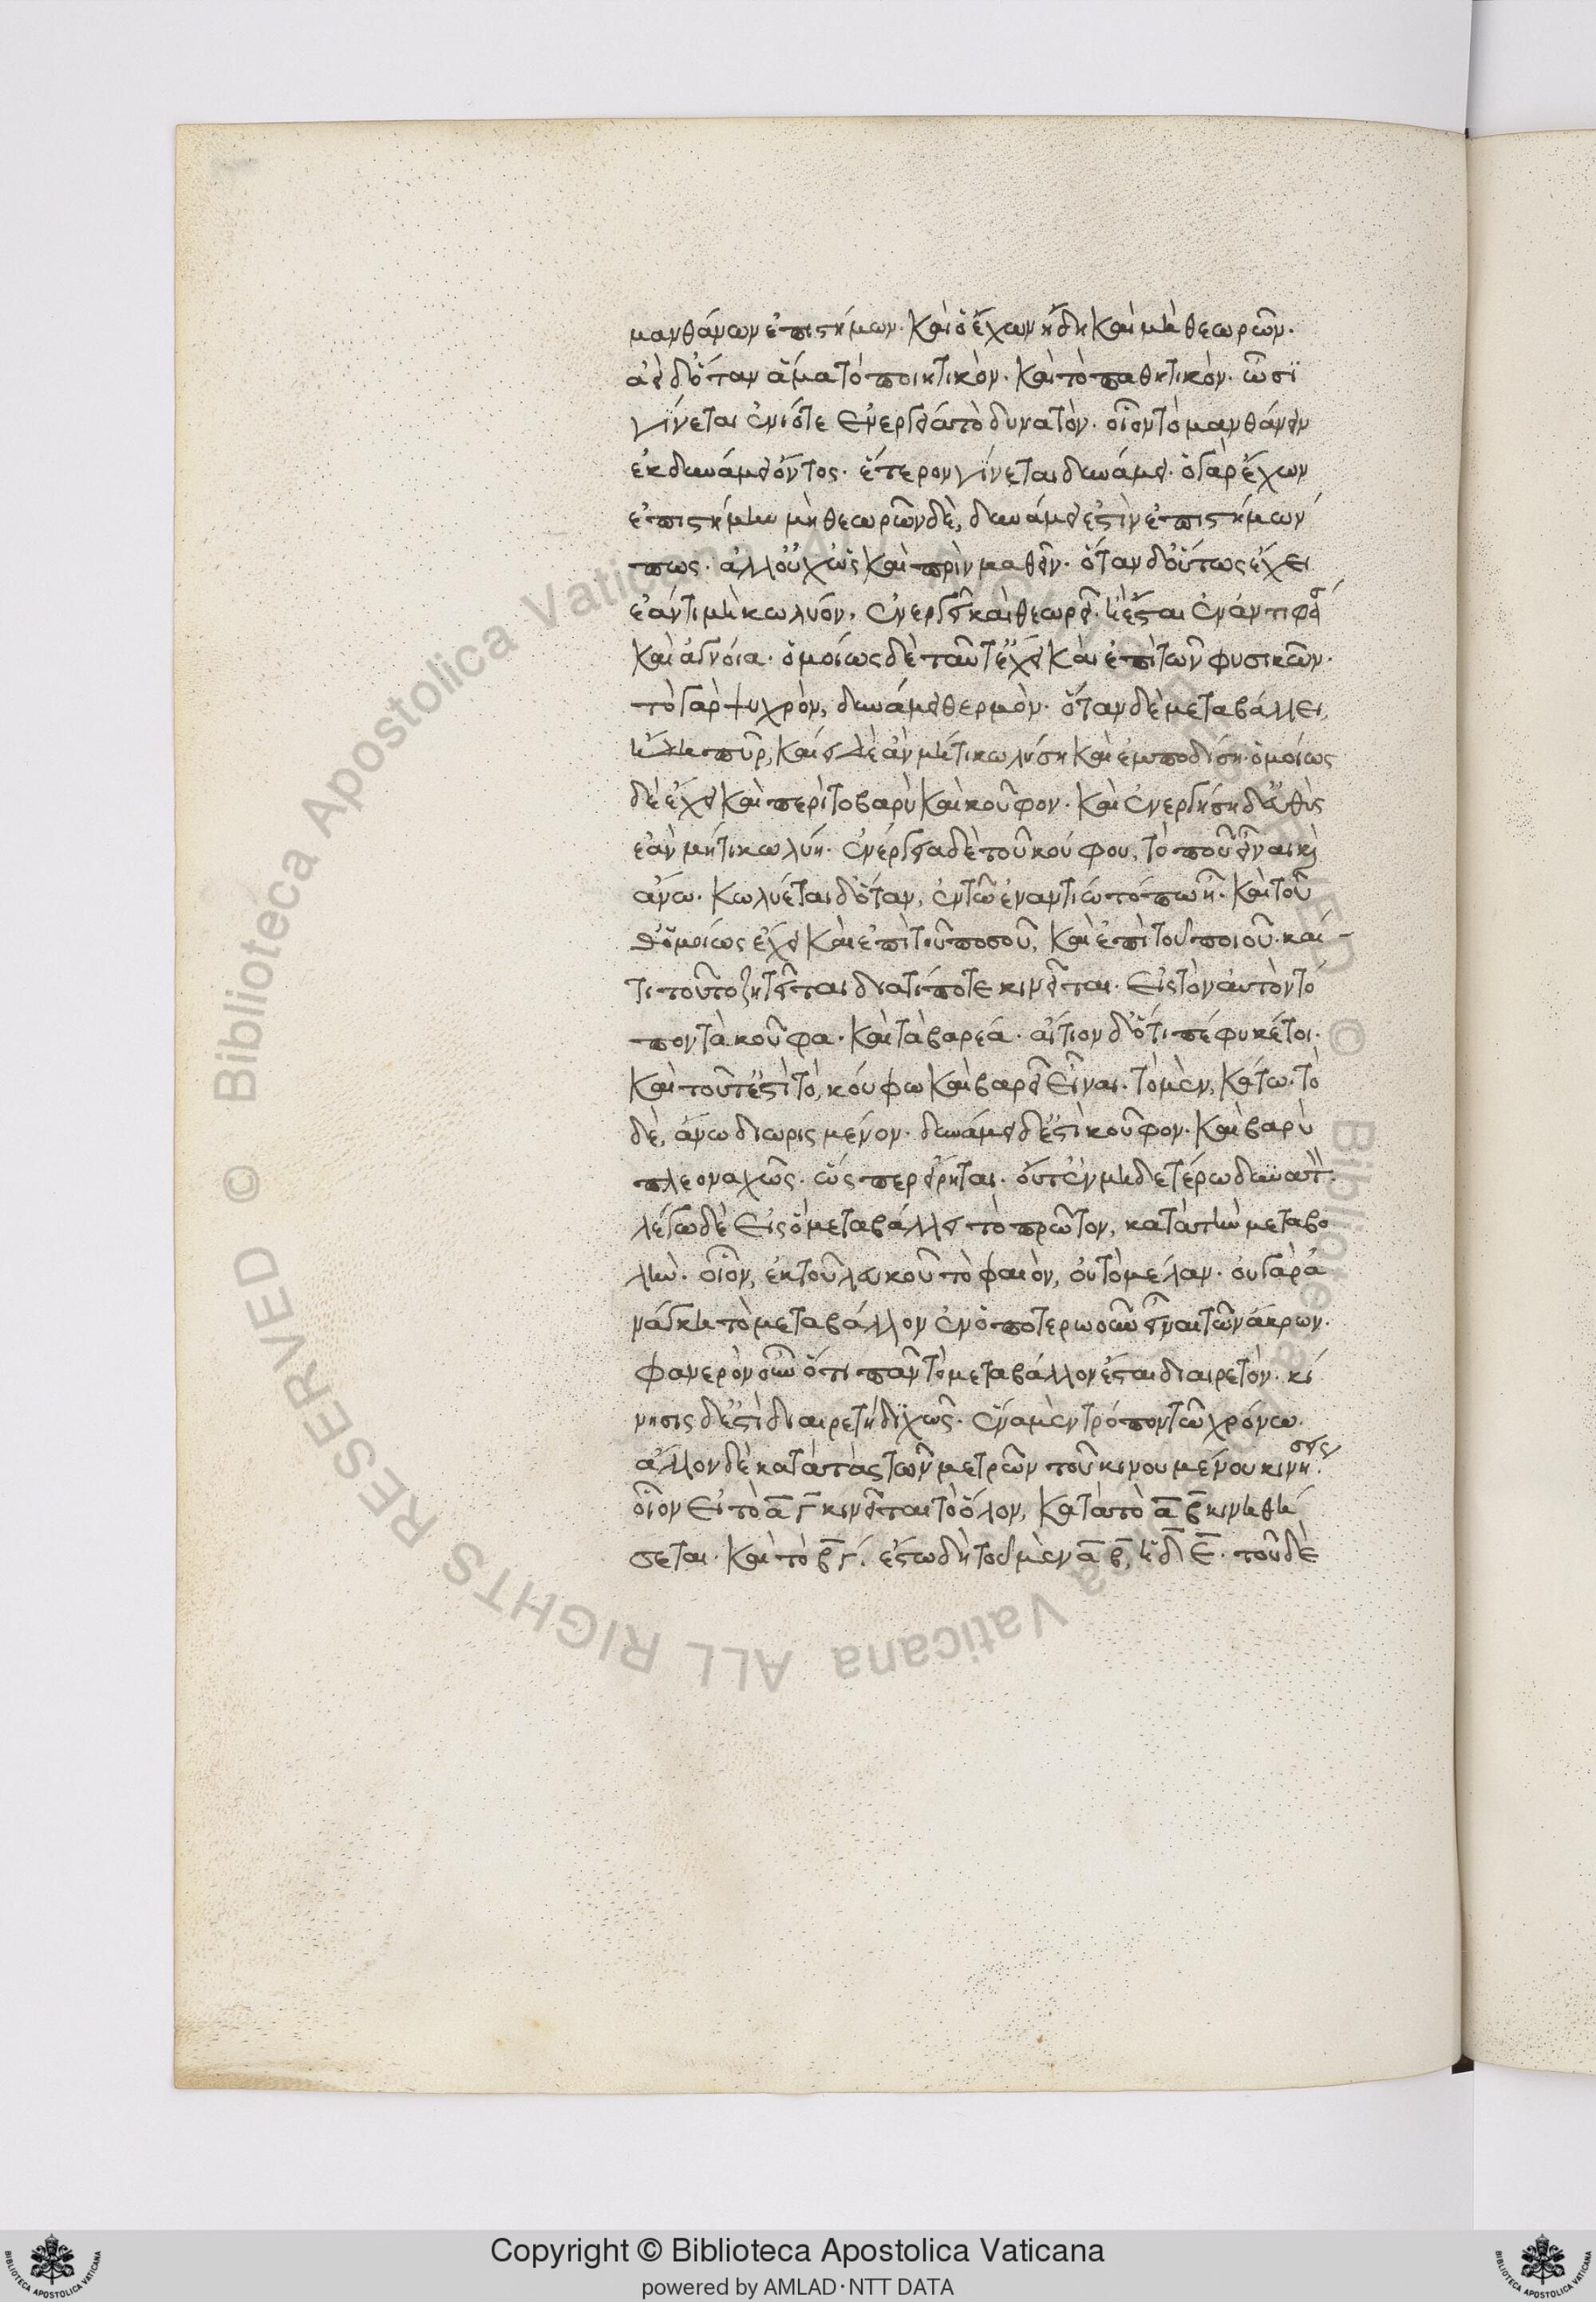 μανθάνων ἐπιστήμων. καὶ ὁ ἔχων ἤδη καὶ μὴ θεωρῶν.
ἀεὶ δ' ὅταν ἅμα τὸ ποιητικὸν. καὶ τὸ παθητικὸν. ὦσϊ
γίνεται ἐνιότε ἐνεργείᾳ τὸ δυνατὸν. οἷον τὸ μανθάνειν
ἐκ δυνάμει ὄντος. ἕτερον γίνεται δυνάμει. ὁ γὰρ ἔχων
ἐπιστήμην μὴ θεωρῶν δὲ, δυνάμει ἐστὶν ἐπιστήμων
πως. ἀλλ' οὐχ ὡς καὶ πρὶν μαθεῖν. ὅταν δ' οὕτως ἔχει
ἐάν τι μὴ κωλύον, ἐνεργεῖ καὶ θεωρεῖ. ἢ ἔσται ἐν ἀντιφά
καὶ ἀγνοία. ὁμοίως δὲ ταῦτ' ἔχει καὶ ἐπὶ τῶν φυσικῶν.
τὸ γὰρ ψυχρὸν, δυνάμει θερμὸν. ὅταν δὲ μεταβάλλει,
ἤδη πῦρ, καίει δὲ ἂν μή τι κωλύση καὶ ἐμποδίση. ὁμοίως
δὲ ἔχει καὶ περὶ τὸ βαρὺ καὶ κοῦφον. καὶ ἐνεργήση δ' εὐθὺς
ἐὰν μή τι κωλύη. ἐνέργεια δὲ τοῦ κούφου, τὸ ποῦ εἶναι καὶ
ἄνω. κωλύεται δ' ὅταν, ἐν τῶ ἐναντίω τόπω ῇ. καὶ τοῦ
θ' ὁμοίως ἔχει καὶ ἐπὶ τοῦ ποσοῦ, καὶ ἐπὶ τοῦ ποιοῦ. καί-
τι τοῦτο ζητεῖται διατί ποτε κινεῖται. εἰς τὸν αὐτὸν τό
πον τὰ κοῦφα. καὶ τὰ βαρεά. αἴτιον δ' ὅτι πέφυκέ τοι.
καὶ τοῦτ' ἔστὶ τὸ, κούφω καὶ βαρεῖ εἶναι. τὸ μὲν, κάτω. τὸ
δὲ, ἄνω διωρισμένον. δυνάμει δ' ἔστὶ κοῦφον. καὶ βαρὺ
πλεοναχῶς. ὥσπερ εἴρηται.
λέγω δὲ εἰς ὃ μεταβάλλει τὸ πρῶτον, κατὰ τὴν μεταβο
λὴν. οἷον, ἐκ τοῦ λευκοῦ τὸ φαιὸν, οὐ τὸ μέλαν. οὐ γὰρ ἀ
νάγκη τὸ μεταβάλλον ἐν ὁποτερωοῦν εἶναι τῶν ἄκρων.
φανερὸν οὖν ὅτι πᾶν τὸ μεταβάλλον ἔσται διαιρετὸν. κί
νησις δ' ἔστὶ διαιρετὴ διχῶς. ἕνα μὲν τρόπον τῶ χρόνω.
ἄλλον δὲ κατὰ τὰς τῶν μετρῶν τοῦ κινουμένου κινήσεις.
οἷον εἰ τὸ α̅ γ̅ κινεῖται τὸ ὅλον, κατὰ τὸ α̅ β̅ κινηθή
σεται. καὶ τὸ β̅ γ̅. ἔστω δὴ τοῦ μὲν α̅ β̅, ἡ δ̅ ε̅. τοῦ δὲ